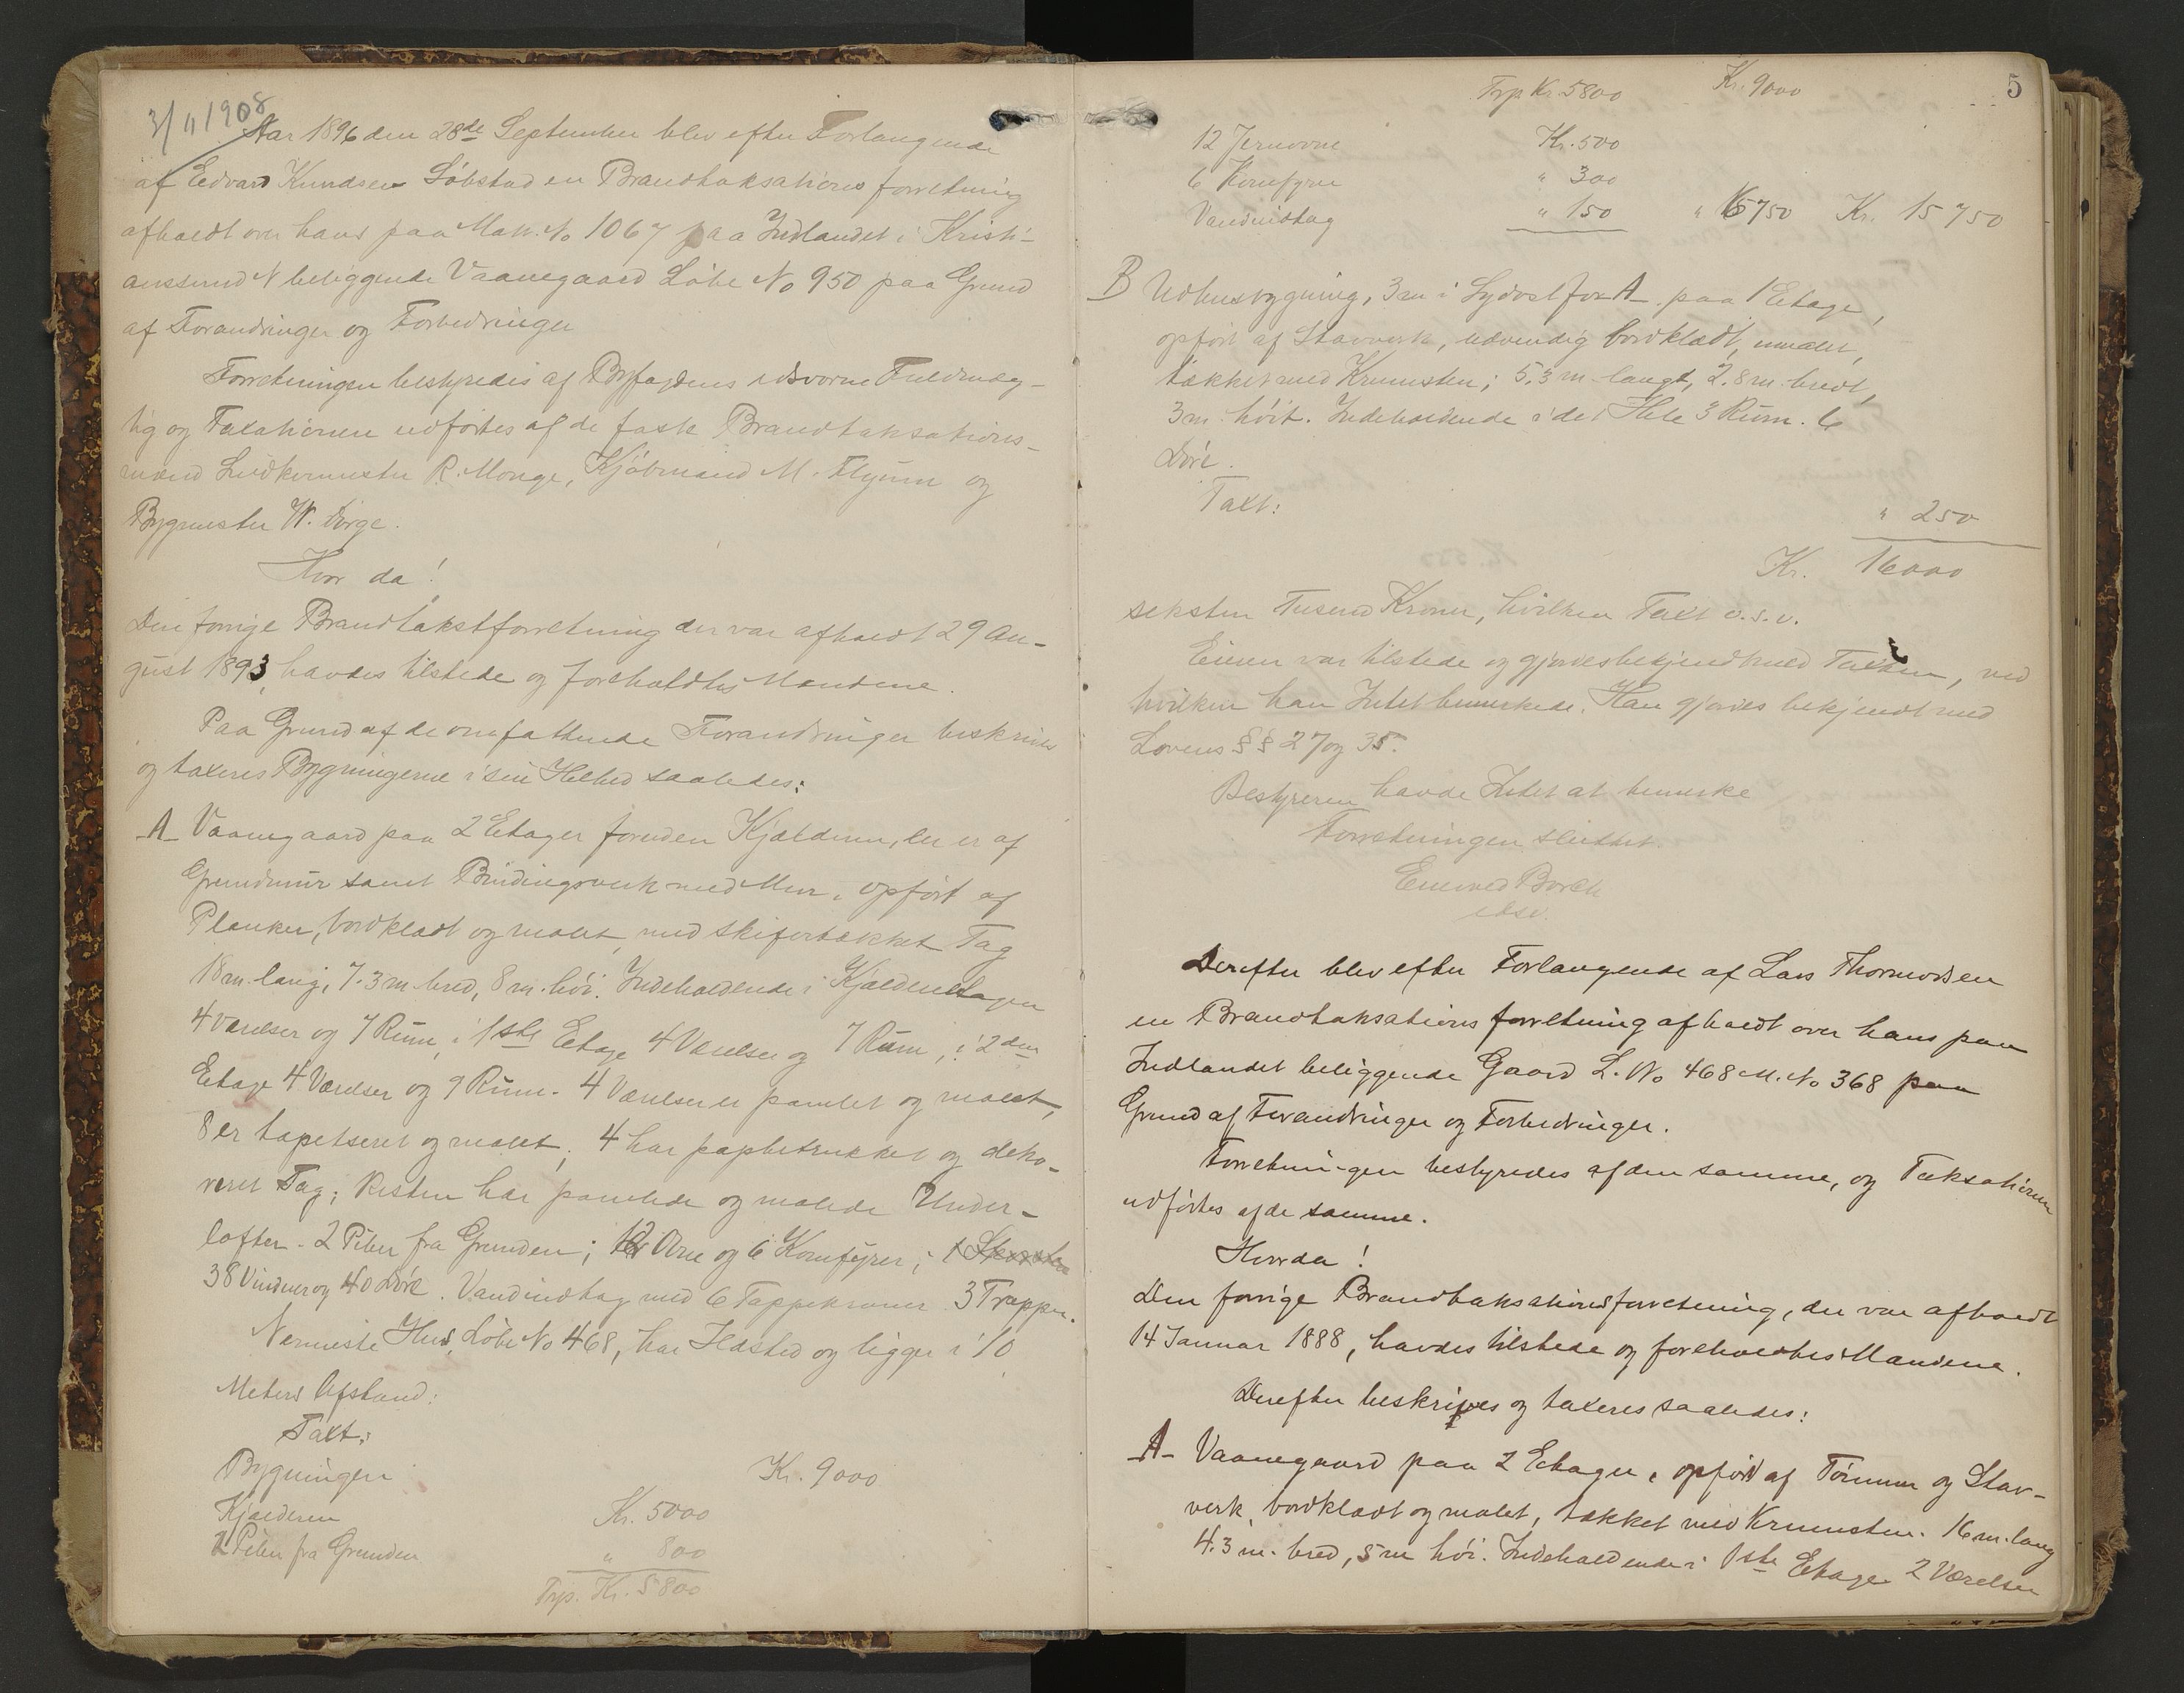 3/11 1908
Aar 1896 den 28de September blev efter Forlangende
af Edvard Knudsen Löbstad en Brandtaksations forretning
afholdt over hans paa Matr. No 1067 paa Indlandet i Kristi-
anssund N beliggende Vaanegaard Löbe No 950 paa Grund
af Forandringer og Forbedringer
Forretningen bestyredes af Byfogdens edsvorne Fuldmæg-
tig og Taxationen udförtes af de faste Brandtaksations-
mænd R. Monge, Kjöbmand M. Flynn og
Bygmester W. Dorge.
Hvor da!
Den forrige Brandtakstforretning der var afholdt 29 Au-
gust 1893, havdes tilstede og foreholdtes Mændene.
Paa Grund af de omfattende Forandringer beskrives
og taxeres Bygningerne i sin Helhed saaledes:
A Vaanegaard paa 2 Etager foruden Kjælderen, der er af
Grundmur samt Bindingsverk med Mur, opfört af
Planker, bordklædt og malet, med skifertækket Tag
18 m. lang, 7.3 m bred, 8 m. höi. Indeholdende i Kjælderetagen
4 værelser og 7 Rum, i 1ste Etage 4 Værelser og 7 Rum, i 2den
Etage 4 Værelser og 9 Rum. 4 Værelser er panelet og malet,
8 er tapetseret og malet; 4 har papbetrukket og deko-
reret Tag; Resten har panelede og malede Under-
lofter. 2 Piber fra Grunden; 12 Ovne og 6 Komfyrer; 1
38 Vinduer og 40 Döre. Vandindtag med 6 Tappekraner 3 Trapper.
Nermeste Hus, Löbe No 468, har Ildsted og ligger i 10
Meters Afstand:
Taxt:
Bygningen Kr. 9000
Kjælderen Kr. 5000
2 Piber fra Grunden " 800
Trp. Kr. 5800
5
Trp. Kr. 5800 Kr. 9000
12 Jernovne Kr. 500
6 Komfyrer " 300
Vandindtag " 150 " 6750 Kr. 15 750
B Udhusbygning, 3 m i Sydvest for A paa 1 Etage,
opfört af Stavverk, udvendig bordklædt, umalet,
tækket med Krumsten; 5.3 m langt, 2.8 m. bredt,
3 m. höit. Indeholdende i det Hele 3 Rum. 6
Döre.
Taxt:
" 250
Kr. 16000
seksten Tusend Kroner, hvilken Taxt o.s.v.
Eieren var tilstede og gjordes bekjendt med Taxten, ved
hvilken han Intet bemerkede. Han gjordes bekjendt med
Lovens §§ 27 og 35.
Bestyreren havde Intet at bemerke
Forretningen sluttet.
Borch
edsv.
Derefter blev efter Forlangende af Lars Thormodsen
en Brandtaksations forretning afholdt over hans paa
Indlandet beliggende Gaard L. No 468 M. No 368 paa
Grund af Forandringer og Forbedringer.
Forretningen bestyredes af den samme, og Taksationen
udförtes af de samme.
Hvorda!
Den forrige Brandtaksationsforretning, der var afholdt
14 Januar 1888, havdes tilstede og foreholdtes Mændene.
Derefter beskrives og taxeres saaledes:
A- Vaanegaard paa 2 Etager, opfört af Tömmer og Stav-
verk, bordklædt og malet, tækket med Krumsten. 16 m. lang
4.3 m. bred, 5 m höi. Indeholdende i 1ste Etage 2 Værelser